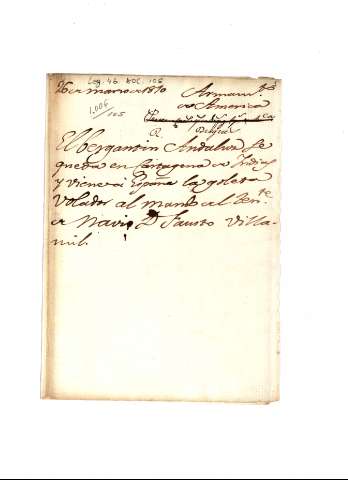 Leg. 46 Doc. 105
26 de marzo de 1810
Armamtos
de America
1.006/105
Buques
El bergantin Andaluz se
queda en Cartagena de Indias
y viene à España la goleta
Volador al mando del Tente
de Navio D. Fausto Villa-
mil.